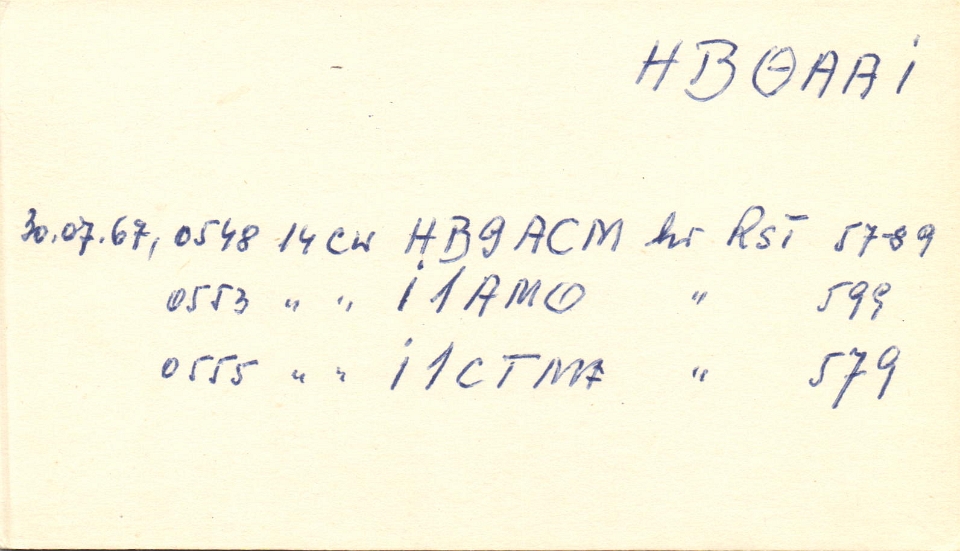 HBØAAi
30.07.67, 0548 14 CW HB9ACM hr RST 57-89
0553 " " i1AMO " 599
0555 " " " 579